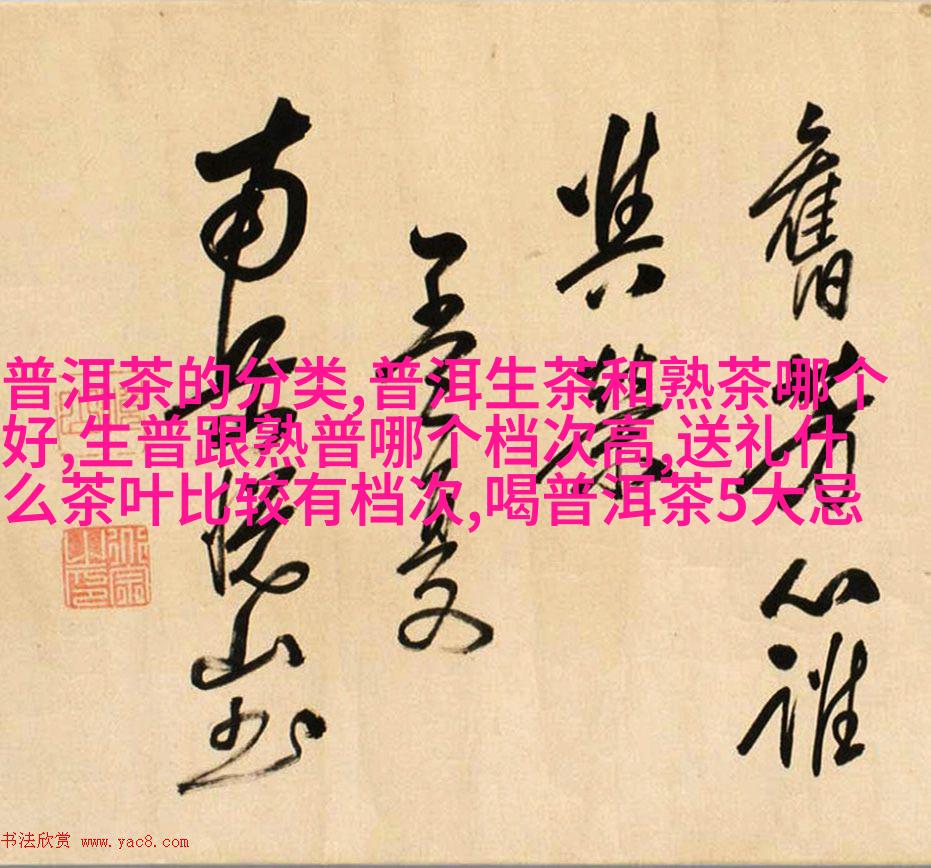 普洱茶的分类,普洱生茶和熟茶哪个
好,生普跟熟普哪个档次高,送礼什
么茶叶比较有档次,喝普洱茶5大忌
舊 心誰
與
夏
南 山
书法欣赏 www.yac8.com